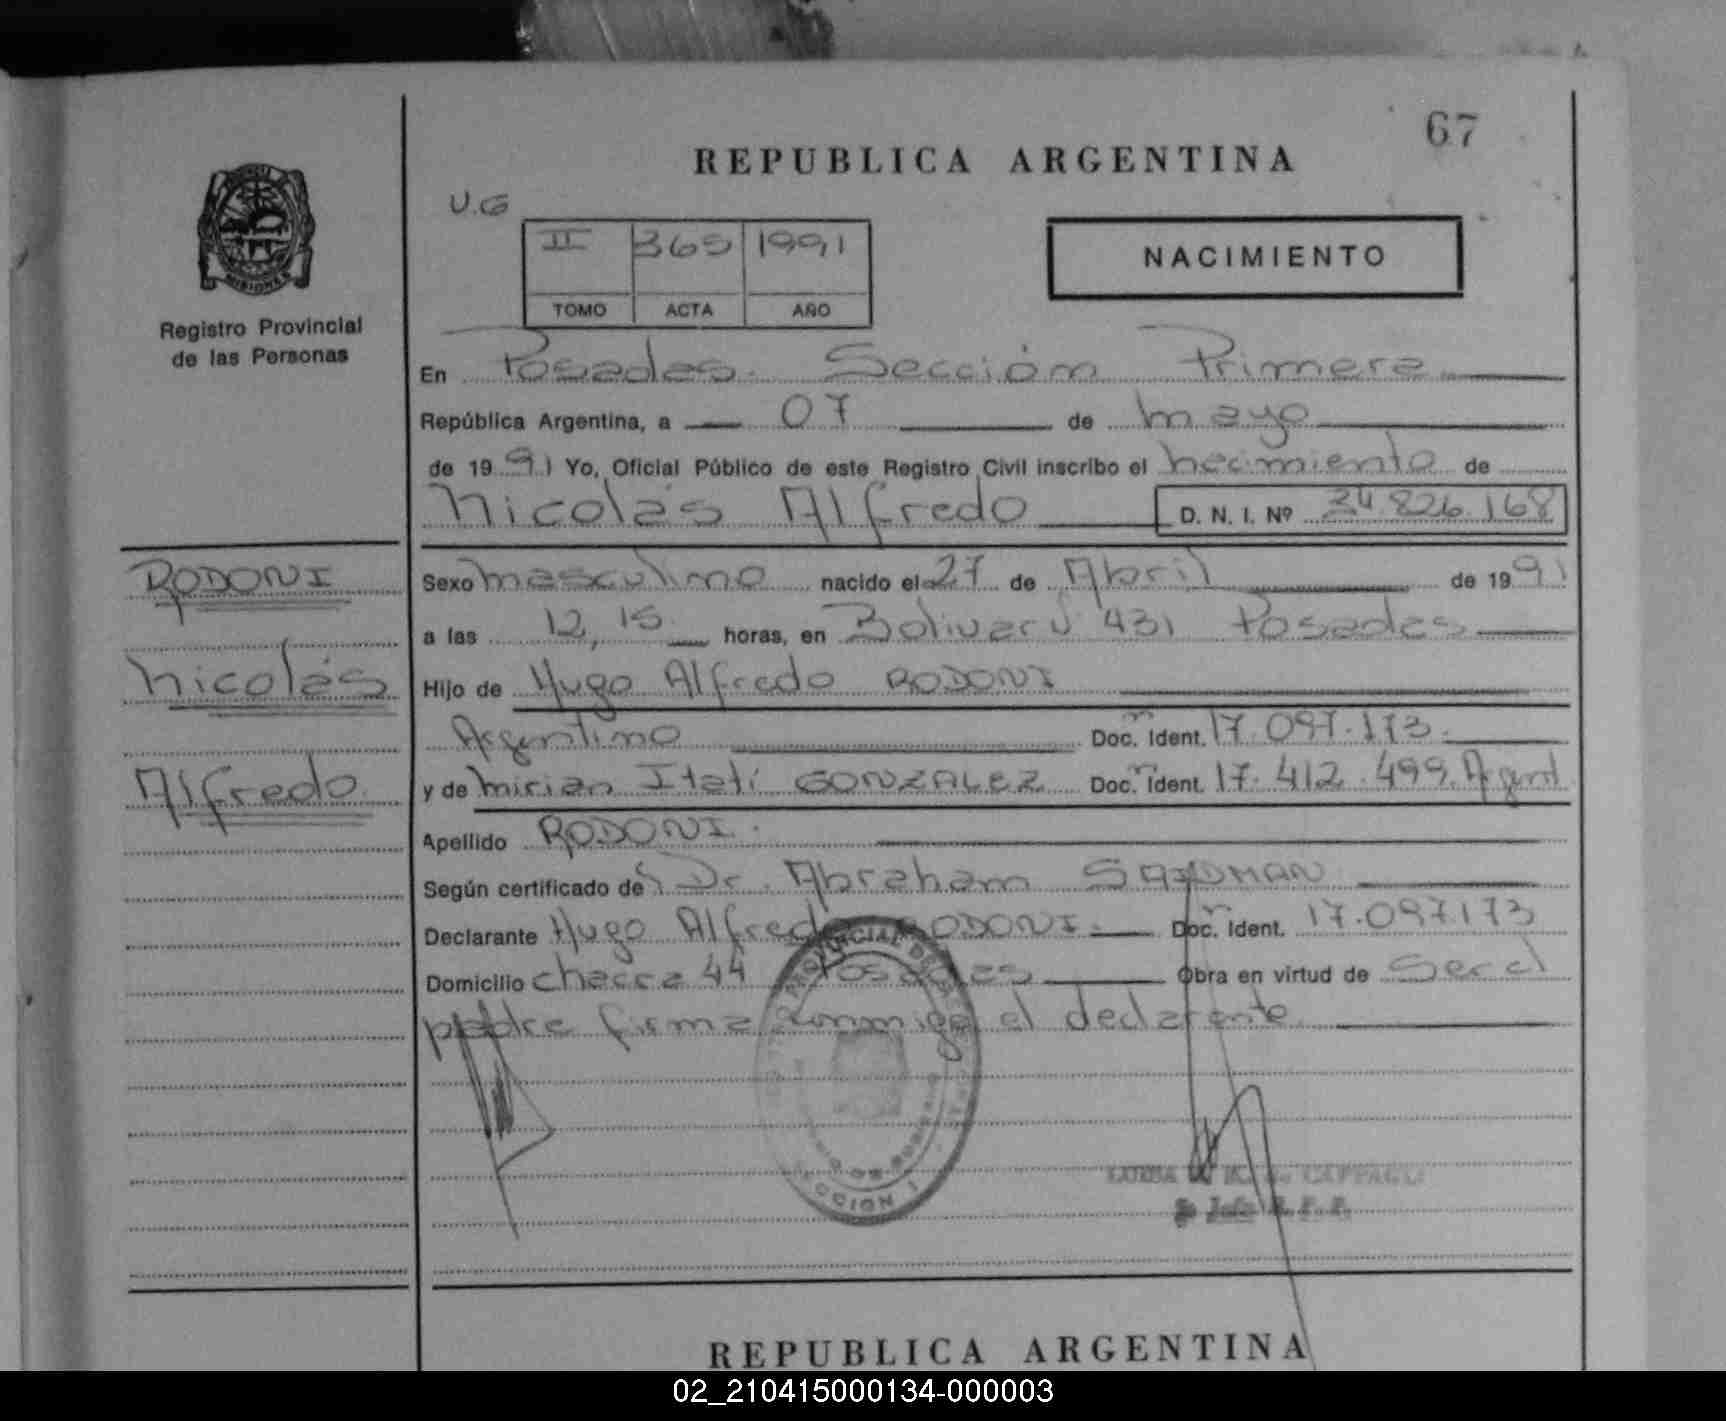 67
REPUBLICA ARGENTINA
U.G
II 365 1991
TOMO ACTA AÑO
NACIMIENTO
MISIONES
Registro Provincial
de las Personas
En Posadas. Sección Primera
República Argentina, a 07 de mayo
de 1991 Yo, Oficial Público de este Registro Civil inscribo el nacimiento de
Nicolás Alfredo D. N. I. Nº 34.826.168
RODONI
Nicolás
Alfredo
Sexo masculino nacido el 27 de Abril de 1991
a las 12,15 horas, en Bolivar Nº 431 Posadas
Hijo de Hugo Alfredo RODONI
Argentino Doc. Ident. 17.097.173.
y de Mirian Itatí GONZALEZ Doc. Ident. 17.412.499. Argent.
Apellido RODONI.
Según certificado del Dr. Abraham
Declarante Hugo Alfredo RODONI. Doc. Ident. 17.097.173
Domicilio chacra 44 Posadas Obra en virtud de Ser el
padre firma conmigo el declarante
SECCION 1
REPUBLICA ARGENTINA
02_210415000134-000003